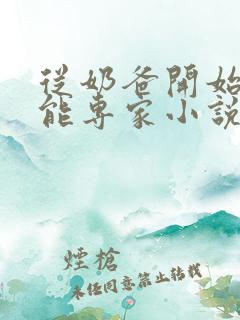 從奶爸開始
能專家小說
煙槍
未經同意禁止轉載